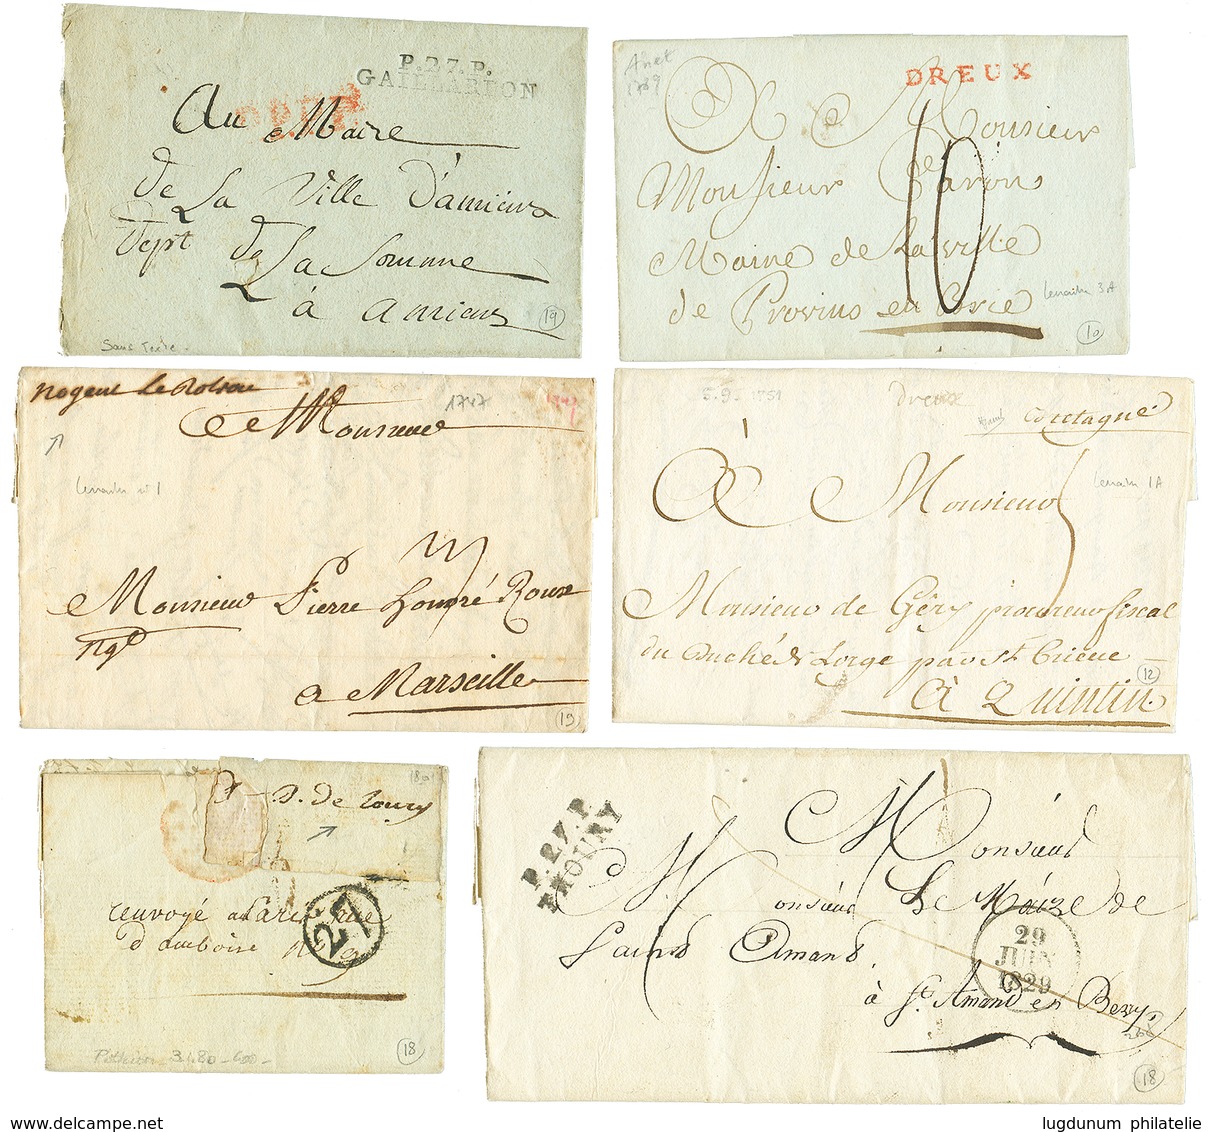 P.27.P.
GAILLARDON
Au Maire
De La Ville D'amiens
Dept De La Somme
à Amiens
Sans Texte -
19
Anet
1789
DREUX
A Monsieur
Monsieur
10
Maire de La Ville
de Provins en Brie
Lenain 3A
10
Nogent Le Rotrou
1747
A Monsieur
Lenain n°1
Monsieur Pierre Honoré Roux
Ng^t
a Marseille
19
5.9-1751
Dreux
Bretagne
À Monsieur
Lenain 1A
Monsieur de Géry procureur fiscal
du Duché de Lorge par St Brieuc
12
À Quintin
1801
P. de Toury
renvoyé a Paris rue
d'amboise
27
Pothion 31.80 - 400 -
18
P.27.P.
THOURY
Monsieur
Monsieur Le Maire de
Saint Amand
29
JUIN
1829
à St. Amand en Berry.
18
www.delcampe.net
lugdunum philatelie